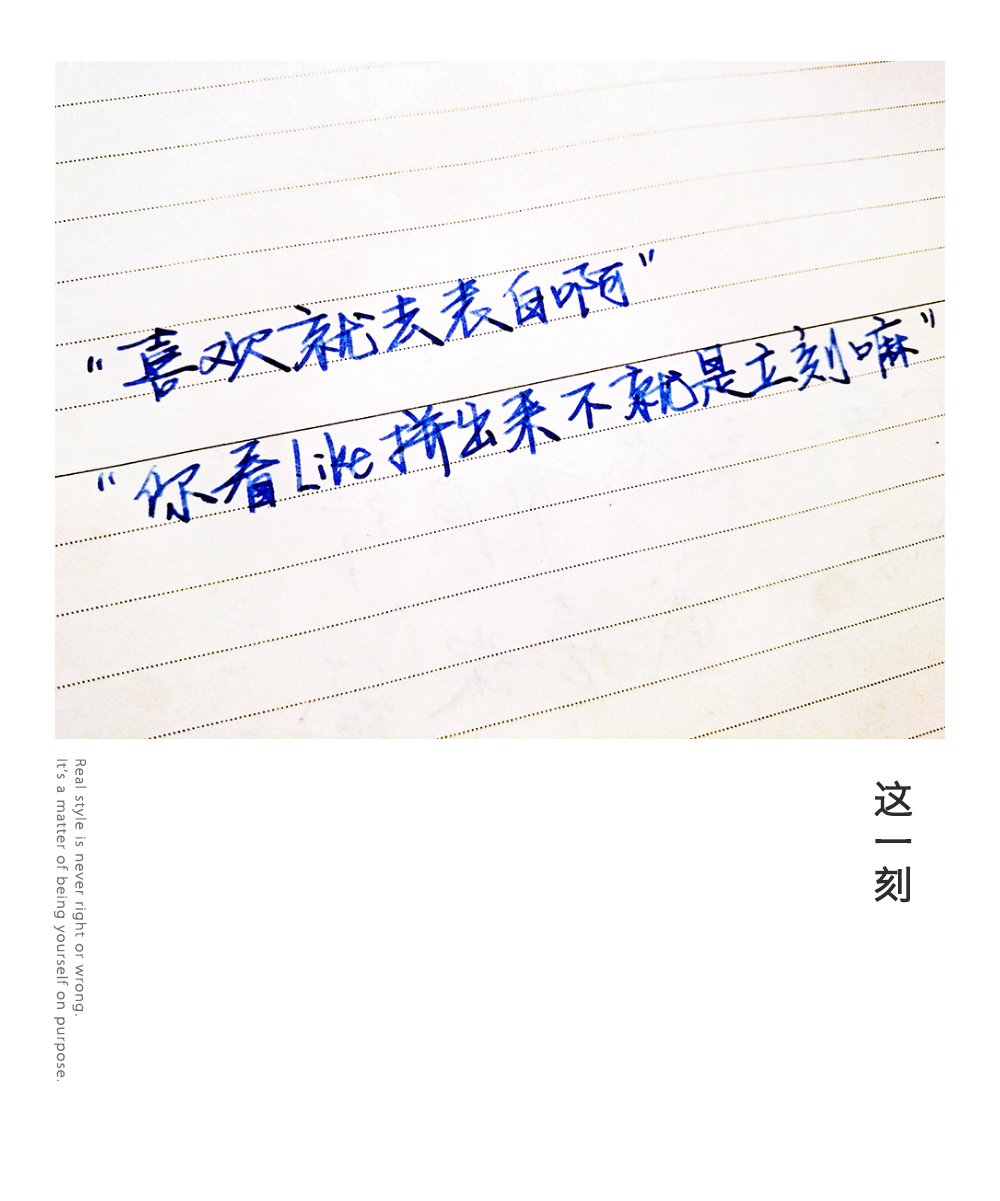 "喜欢就去表白啊"
"你看Like拼出来不就是立刻嘛"
这一刻
Real style is never right or wrong.
It's a matter of being yourself on purpose.